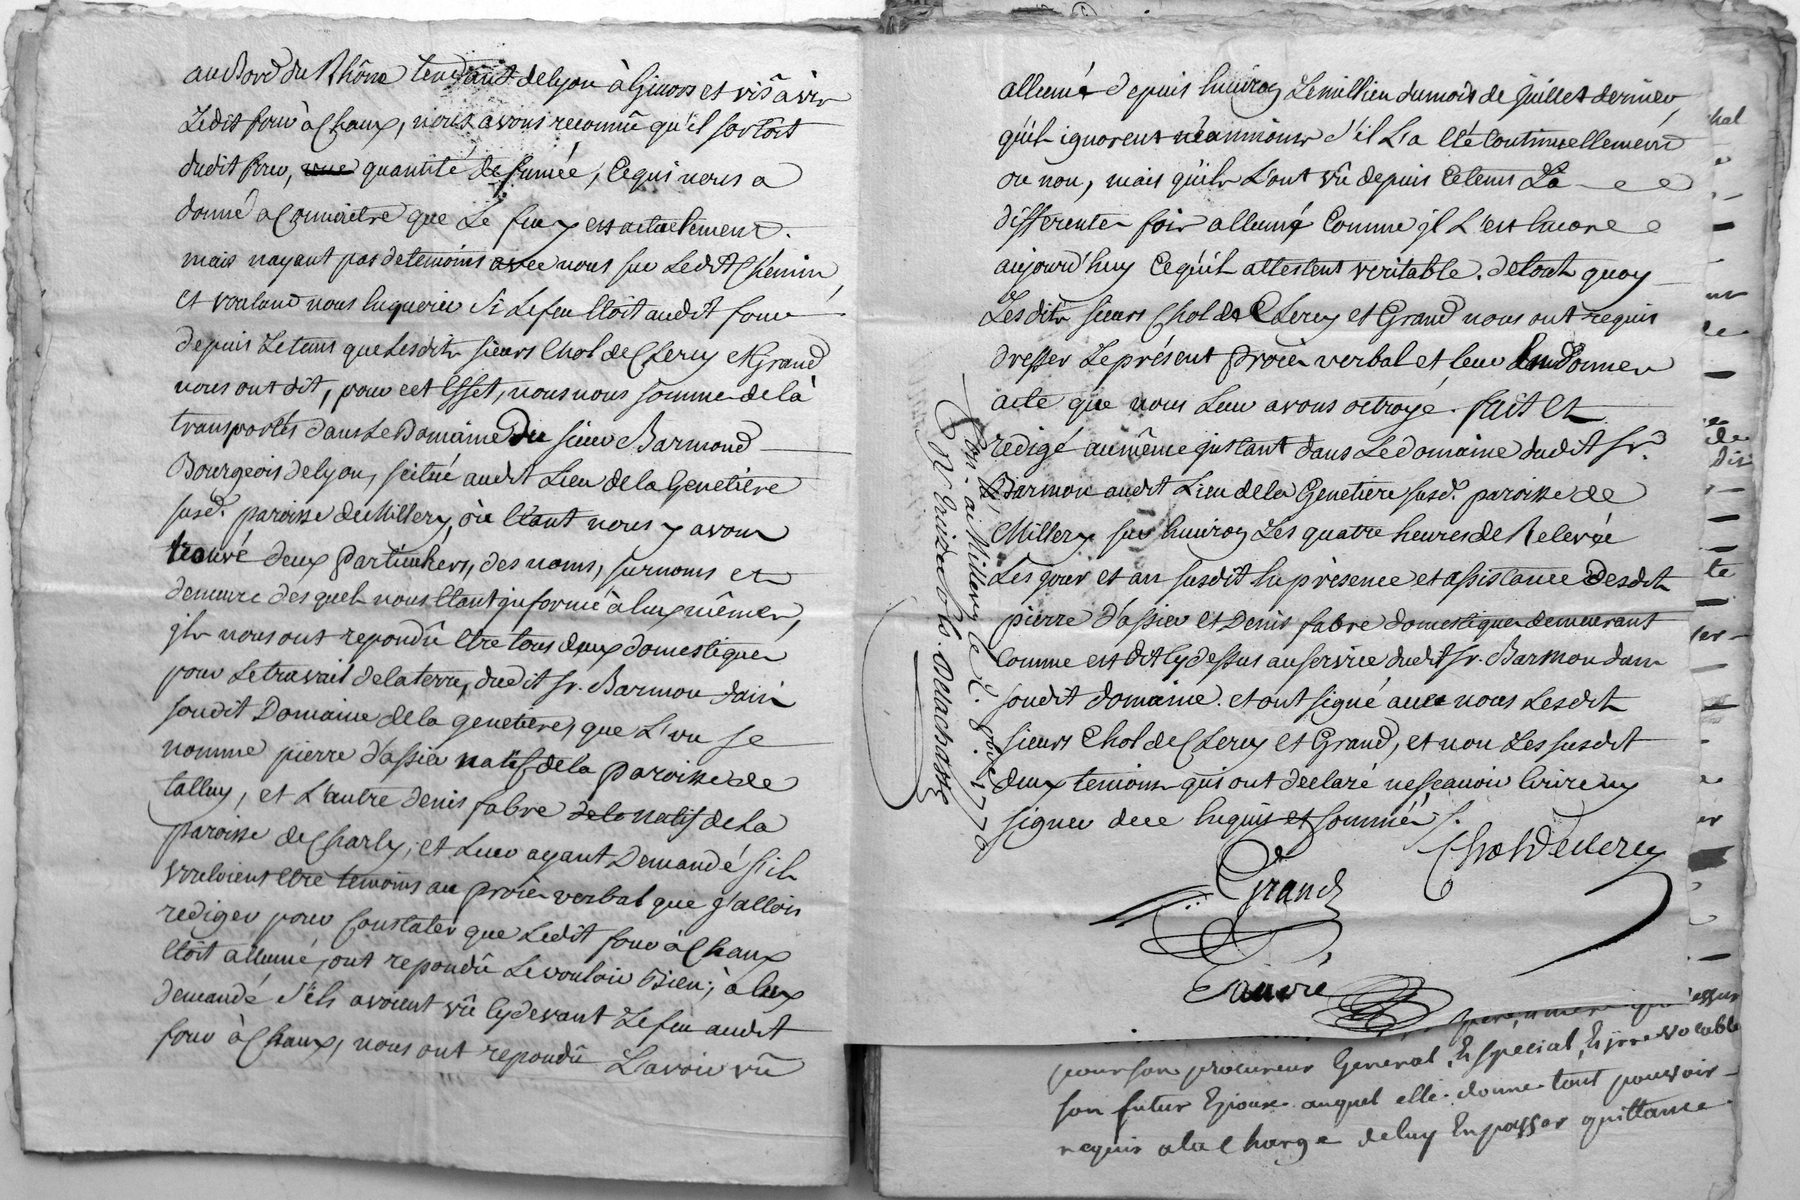 au Bord du Rhône tendant de lyon à Givors et vis à vis
Ledit four à Chaux, nous avons reconnû qu'il sortoit
dudit four, une quantité de fumée, Ce qui nous a
donné a Connoitre que Le feu y est actuelement.
mais nayant pas de temoins avec nous sur Ledit Chemin,
et voulant nous Enquerir si Le feu Etoit audit four
depuis Le tems que Lesdits sieurs Chol de Clercy et Grand
nous ont dit, pour cet Effet, nous nous sommes de là
transportés dans Le Domaine du sieur Barmond
Bourgeois de lyon, scitué audit Lieu de la Genetiere
susd. paroisse de Millery, où Etant nous y avons
trouvé deux particuliers, des noms, surnoms et
demeure desquels nous Etant informé à Eux mêmes,
ils nous ont repondû Etre tous deux domestiques
pour Le travail de la terre, dudit sr. Barmon dans
sondit Domaine de la genetiere, que L'un se
nomme pierre dassier natif de la paroisse de
talluy, et L'autre denis fabre de la natif de La
paroisse de Charly, et Leur ayant Demandé s'ils
vouloient Etre temoins au procès verbal que j'allois
rediger pour Constater que Ledit four à Chaux
Etoit allumé, ont repondû Le vouloir Bien; à Eux
demandé s'ils avoient vû Cy devant Le feu audit
four à Chaux, nous ont repondû L'avoir vû
allumé depuis Environ Le millieu du mois de Juillet dernier,
qu'ils ignorent néanmoins s'il L'a Eté Continuellement
ou non, mais qu'ils L'ont vû depuis Ce tems La
differentes fois allumé Comme il L'est Encore
aujourd'huy Ce qu'ils attestent veritable. de tout quoy
Lesdits sieurs Chol de Clercy et Grand nous ont requis
dresser Le présent procès verbal et Leur En donner
acte que nous Leur avons octroyé. fait Et
redigé au même instant dans Le domaine dudit sr.
Barmon audit Lieu de la Genetiere susd. paroisse de
Millery sur Environ Les quatre heures de Relevée
Les jour et an susdit En présence et assistance desdits
pierre dassier et Denis fabre domestiques demeurant
Comme est dit Cy dessus au service dudit sr. Barmon dans
sondit domaine. et ont signé avec nous Lesdits
sieurs Chol de Clercy et Grand, et non Les susdits
deux temoins qui ont declaré ne sçauoir Ecrire ny
signer de ce Enquis et sommés.
Chol De clercy
Grand
Con. a Millery Le 2. 8bre 1778
Delachasse
pour son procureur General, Et special, Et irrevocable
son futur Epoux auquel elle donne tout pouvoir
requis a la Charge de luy En passer quittance